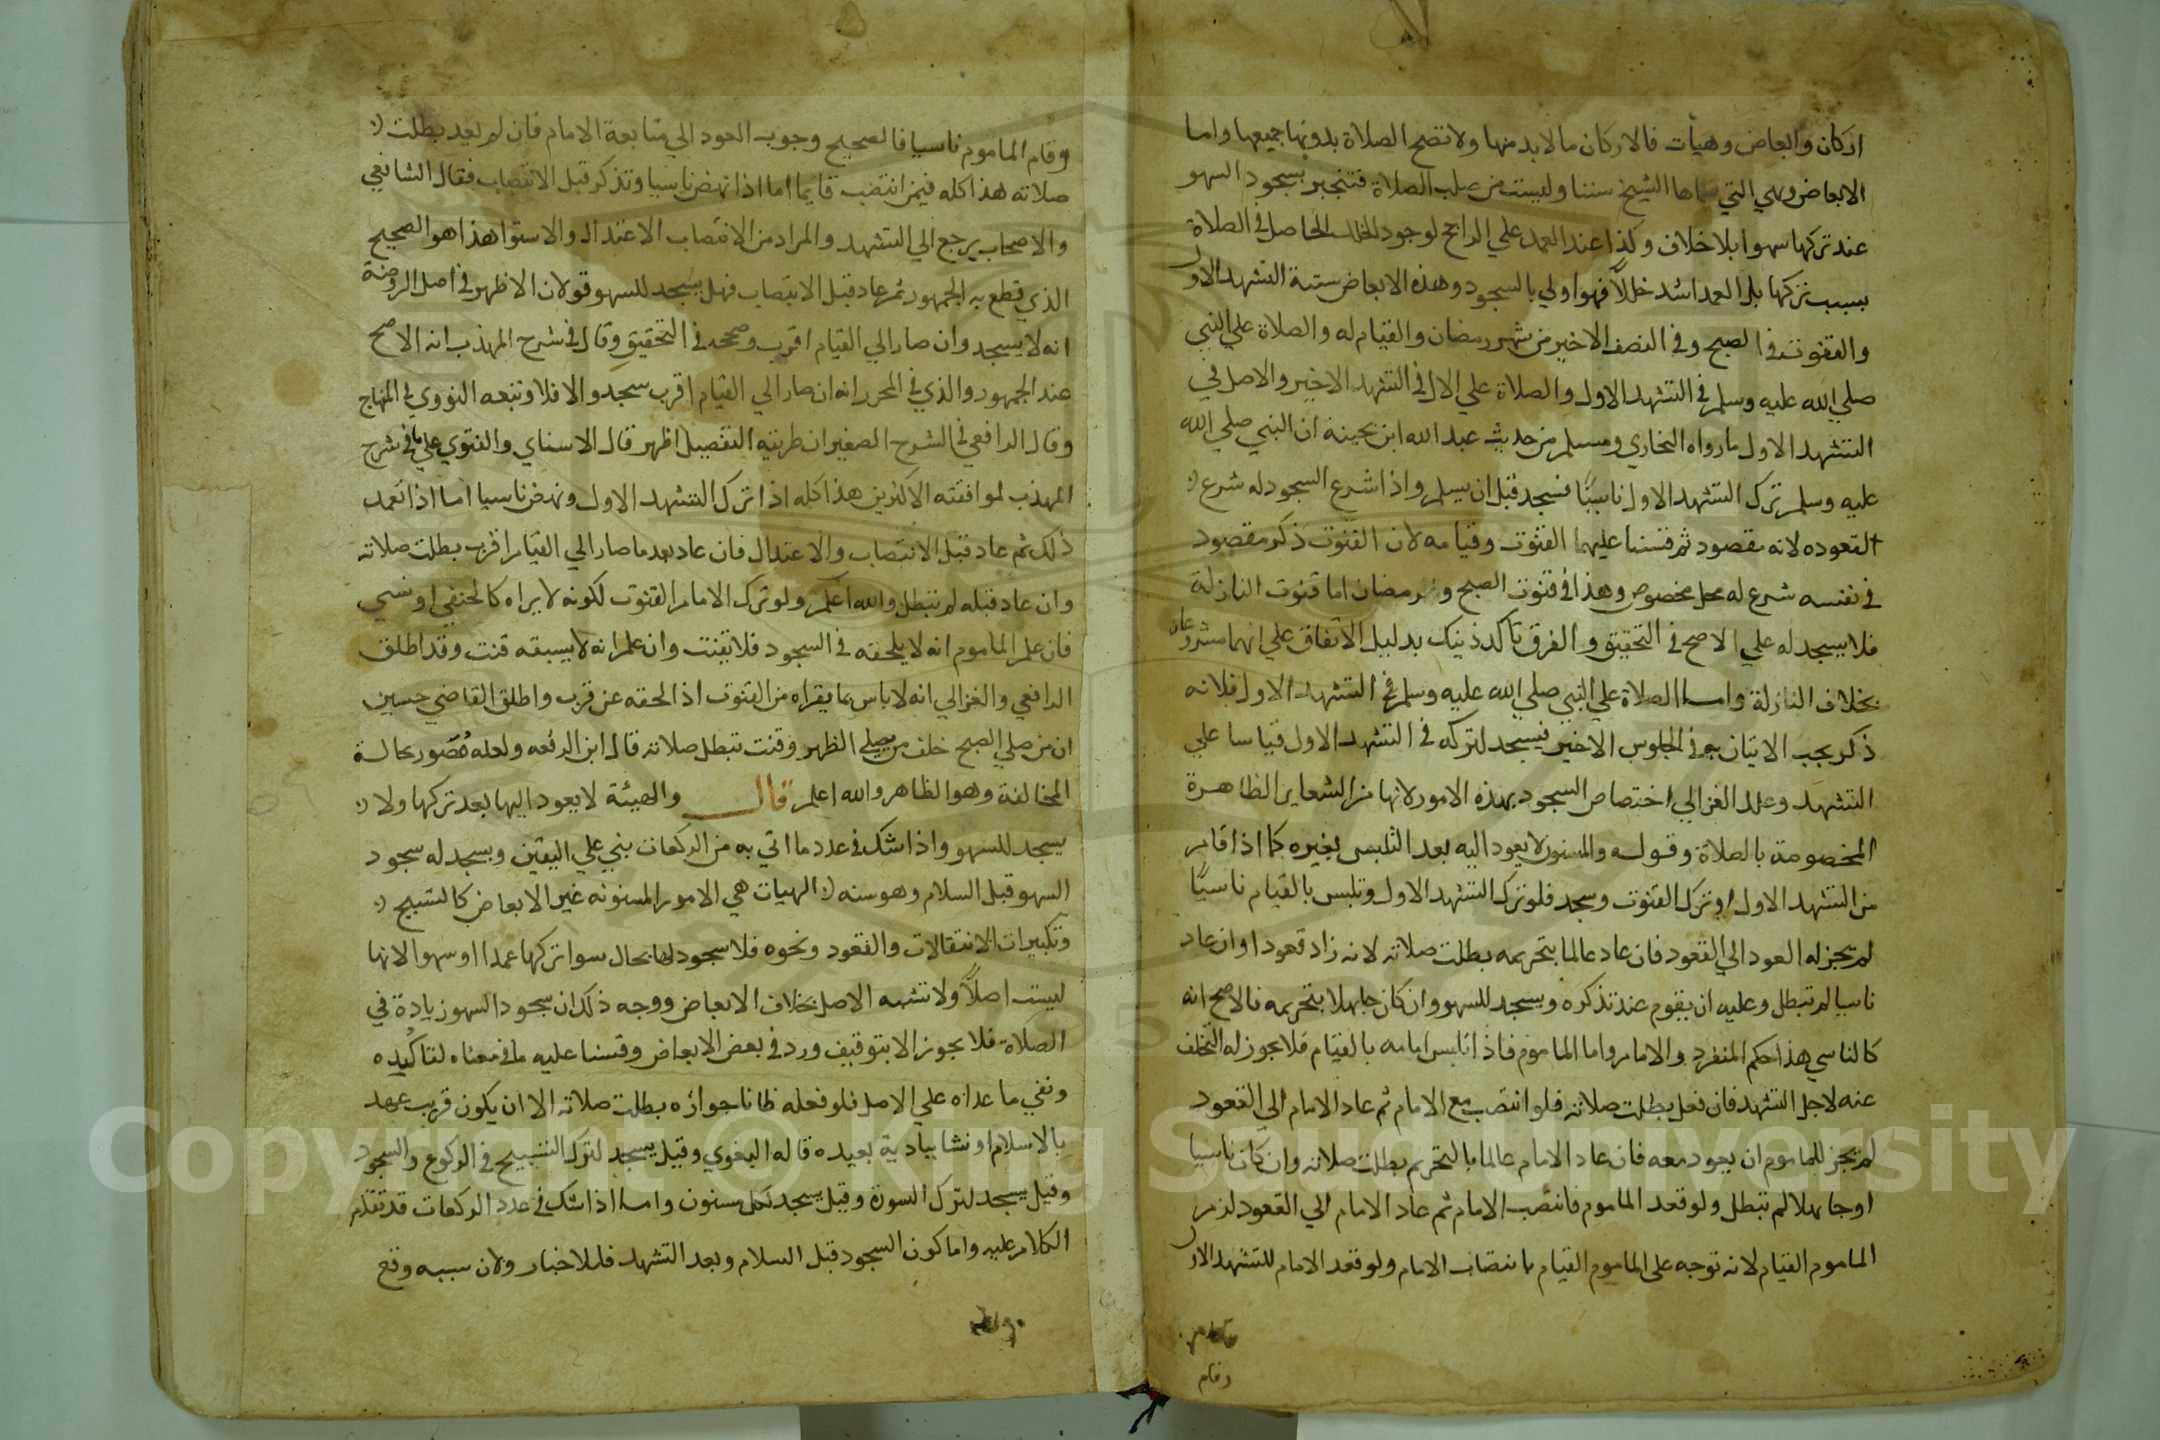 اركان وابعاض وهيأت فالاركان مالابد منها ولا تصح الصلاة بدونها جميعها واما
الابعاض وهي التي سماها الشيخ سننا وليست من صلب الصلاة فتنجبر بسجود السهو
عند تركها سهوا بلا خلاف وكذا عند العمد علي الراجح لوجود الخلل الحاصل في الصلاة
بسبب تركها بل العمد اشد خللاً فهو اولي بالسجود وهذه الابعاض ستة التشهد الاول
والقنوت في الصبح وفي النصف الاخير من شهر رمضان والقيام له والصلاة علي النبي
صلي الله عليه وسلم في التشهد الاول والصلاة علي الال في التشهد الاخير والاصل في
التشهد الاول ما رواه البخاري ومسلم من حديث عبد الله ابن بحينة ان النبي صلي الله
عليه وسلم ترك التشهد الاول ناسيًا فسجد قبل ان يسلم واذا شرع السجود له شرع
القعوده لانه مقصود ثم قسنا عليهما القنوت وقيامه لان القنوت ذكر مقصود
في نفسه شرع له محل مخصوص وهذا في قنوت الصبح و رمضان اما قنوت النازلة
فلا يسجد له علي الاصح في التحقيق والفرق تاكد ذينك بدليل الاتفاق علي انهما مشروعان
بخلاف النازلة واما الصلاة علي النبي صلي الله عليه وسلم في التشهد الاول فلانه
ذكر يجب الاتيان به في الجلوس الاخير فيسجد لتركه في التشهد الاول قياسا علي
التشهد وعلل الغزالي اختصاص السجود بهذه الامور لانها من الشعاير الظاهرة
المخصوصة بالصلاة وقوله والمسنون لا يعود اليه بعد التلبس بغيره كما اذا قام
من التشهد الاول او ترك القنوت وسجد فلو ترك التشهد الاول وتلبس بالقيام ناسيًا
لم يجز له العود الي القعود فان عاد عالما بتحريمه بطلت صلاته لانه زاد قعودا وان عاد
ناسيا لم تبطل وعليه ان يقوم عند تذكره ويسجد للسهو وان كان جاهلا بتحريمه فالاصح انه
كالناسي هذا حكم المنفرد والامام واما الماموم فاذا تلبس امامه بالقيام فلا يجوز له التخلف
عنه لاجل التشهد فان فعل بطلت صلاته فلو انتصب مع الامام ثم عاد الامام الي القعود
لم يجز للماموم ان يعود معه فان عاد الامام عالما بالتحريم بطلت صلاته وان كان ناسيا
او جاهلا لم تبطل ولو قعد الماموم فانتصب الامام ثم عاد الامام الي القعود لزم
الماموم القيام لانه توجه علي الماموم القيام بانتصاب الامام ولو قعد الامام للتشهد الاول
وقام
وقام الماموم ناسيا فالصحيح وجوب العود الي متابعة الامام فان لم يعد بطلت
صلاته هذا كله فيمن انتصب قايما اما اذا نهض ناسيا وتذكر قبل الانتصاب فقال الشافعي
والاصحاب يرجع الي التشهد والمراد من الانتصاب الاعتدال والاستوا هذا هو الصحيح
الذي قطع به الجمهور ثم عاد قبل الانتصاب فهل يسجد للسهو قولان الاظهر في اصل الروضة
انه لا يسجد وان صار الي القيام اقرب وصححه في التحقيق وقال في شرح المهذب انه الاصح
عند الجمهور والذي في المحرر انه ان صار الي القيام اقرب سجد والا فلا وتبعه النووي في المنهاج
وقال الرافعي في الشرح الصغير ان طريقة التفصيل اظهر قال الاسناي والفتوي علي ما في شرح
المهذب لموافقته الاكثرين هذا كله اذا ترك التشهد الاول ونهض ناسيا اما اذا تعمد
ذلك ثم عاد قبل الانتصاب والاعتدال فان عاد بعد ما صار الي القيام اقرب بطلت صلاته
وان عاد قبله لم تبطل والله اعلم ولو ترك الامام القنوت لكونه لا يراه كالحنفي او نسي
فان علم الماموم انه لا يلحقه في السجود فلا يقنت وان علم انه لا يسبقه قنت وقد اطلق
الرافعي والغزالي انه لا باس بما يقراه من القنوت اذا لحقه عن قرب واطلق القاضي حسين
ان من صلي الصبح خلف من يصلي الظهر وقنت تبطل صلاته قال ابن الرفعه ولعله مصور بحالة
المخالفة وهو الظاهر والله اعلم قال والهيئة لا يعود اليها بعد تركها ولا
يسجد للسهو واذا شك في عدد ما اتي به من الركعات بني علي اليقين ويسجد له سجود
السهو قبل السلام وهو سنه الهيات هي الامور المسنونه غير الابعاض كالتسبيح
وتكبيرات الانتقالات والقعود ونحوه فلا سجود لها بحال سوا تركها عمدا او سهوا لانها
ليست اصلاً ولا تشبه الاصل بخلاف الابعاض ووجه ذلك ان سجود السهو زيادة في
الصلاة فلا يجوز الا بتوقيف ورد في بعض الابعاض وقسنا عليه ما في معناه لتاكيده
ونفي ما عداه علي الاصل فلو فعله ظانا جوازه بطلت صلاته الا ان يكون قريب عهد
بالاسلام او نشا ببادية بعيده قاله البغوي وقيل يسجد لترك التسبيح في الركوع والسجود
وقيل يسجد لترك السورة وقيل يسجد لكل مسنون واما اذا شك في عدد الركعات قد تقدم
الكلام عليه واما كون السجود قبل السلام وبعد التشهد فللاخبار ولان سببه وقع
Copyright © King Saud University